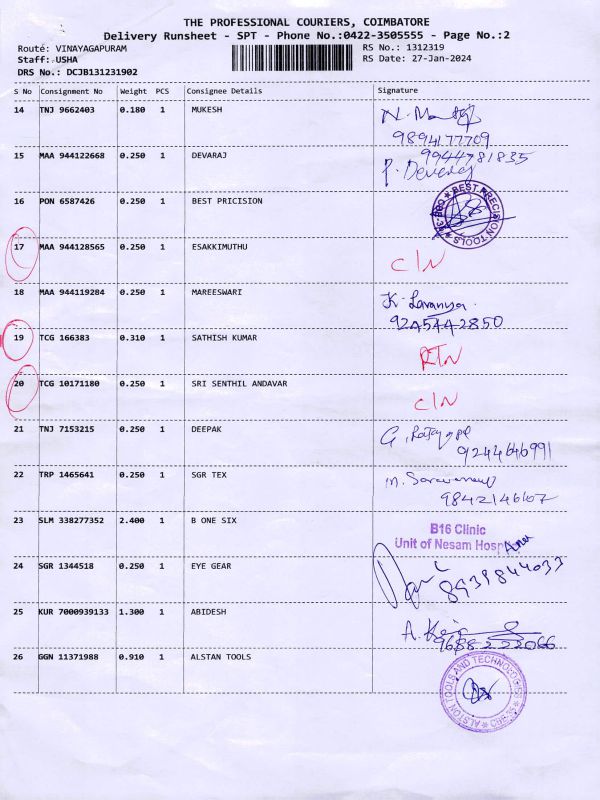 THE PROFESSIONAL COURIERS, COIMBATORE
Delivery Runsheet - SPT - Phone No.:0422-3505555 - Page No.:2
Route: VINAYAGAPURAM
Staff: USHA
DRS No.: DCJB131231902
RS No.: 1312319
RS Date: 27-Jan-2024
S No Consignment No Weight PCS Consignee Details Signature
14 TNJ 9662403 0.180 1 MUKESH
9894177709
15 MAA 944122668 0.250 1 DEVARAJ
9944781835
16 PON 6587426 0.250 1 BEST PRICISION
BEST PRECISION TOOLS
17 MAA 944128565 0.250 1 ESAKKIMUTHU
C/N
18 MAA 944119284 0.250 1 MAREESWARI
K. Lavanya
9245442850
19 TCG 166383 0.310 1 SATHISH KUMAR
RTN
20 TCG 10171180 0.250 1 SRI SENTHIL ANDAVAR
C/N
21 TNJ 7153215 0.250 1 DEEPAK
9244646991
22 TRP 1465641 0.250 1 SGR TEX
9842146607
23 SLM 338277352 2.400 1 B ONE SIX
B16 Clinic
Unit of Nesam Hospital
24 SGR 1344518 0.250 1 EYE GEAR
8939844033
25 KUR 7000939133 1.300 1 ABIDESH
9688222066
26 GGN 11371988 0.910 1 ALSTAN TOOLS
ALSTON TOOLS AND TECHNOLOGIES